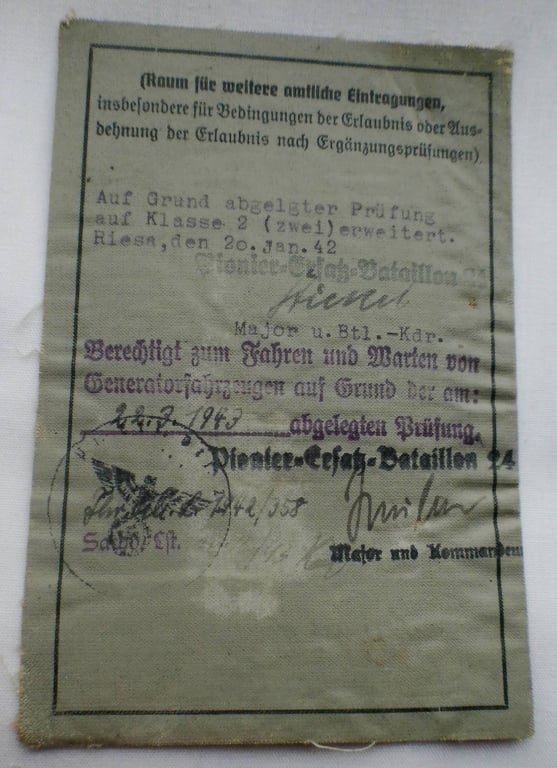 (Raum für weitere amtliche Eintragungen,
insbesondere für Bedingungen der Erlaubnis oder Aus-
dehnung der Erlaubnis nach Ergänzungsprüfungen)
Auf Grund abgelgter Prüfung
auf Klasse 2 (zwei) erweitert.
Riesa, den 20. Jan. 42
Pionier-Ersatz-Bataillon 24
Major u. Btl.-Kdr.
Berechtigt zum Fahren und Warten von
Generatorfahrzeugen auf Grund der am:
22.7.1943 abgelegten Prüfung.
Pionier-Ersatz-Bataillon 24
1942/358
Major und Kommandeur